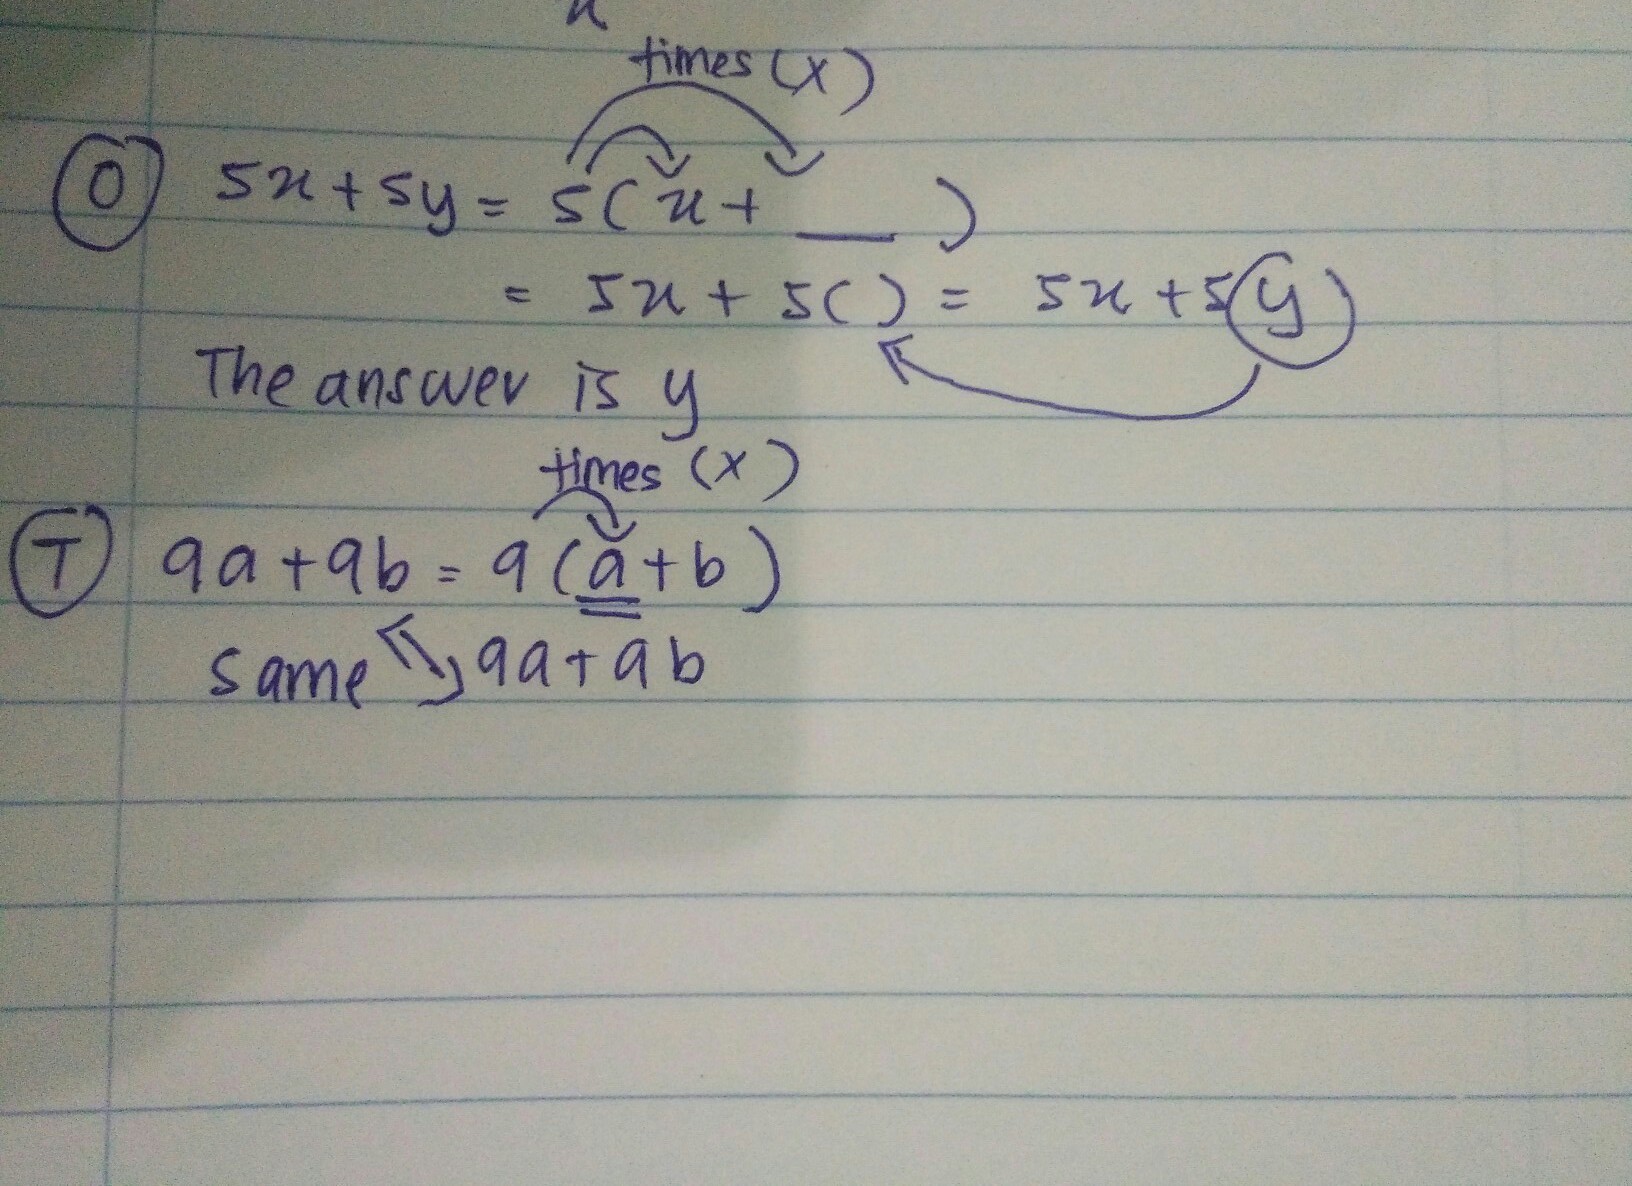 times (x)
O 5x+5y = 5(x+ __ )
= 5x + 5( ) = 5x+5y
The answer is y
times (x)
T 9a+9b = 9(a+b)
same 9a+9b